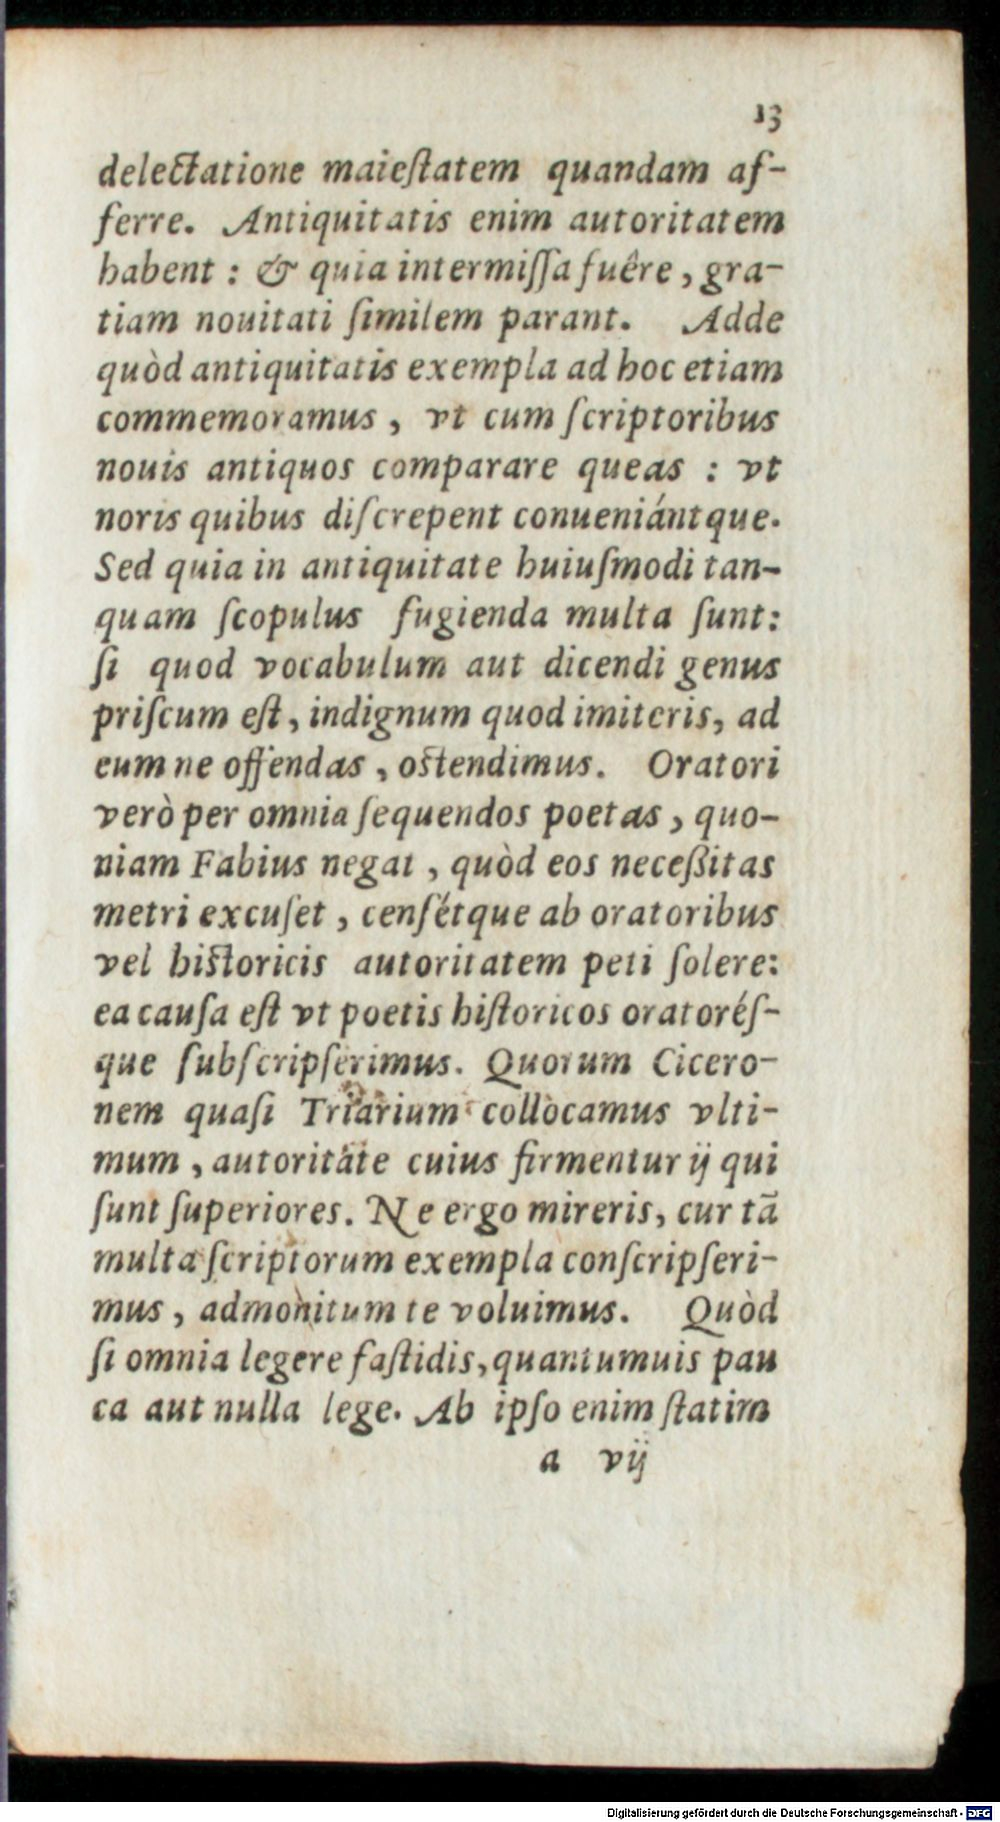 13
delectatione maieſtatem quandam af-
ferre. Antiquitatis enim autoritatem
habent : & quia intermiſſa fuêre, gra-
tiam nouitati ſimilem parant. Adde
quòd antiquitatis exempla ad hoc etiam
commemoramus, vt cum ſcriptoribus
nouis antiquos comparare queas : vt
noris quibus diſcrepent conueniántque.
Sed quia in antiquitate huiuſmodi tan-
quam ſcopulus fugienda multa ſunt:
ſi quod vocabulum aut dicendi genus
priſcum eſt, indignum quod imiteris, ad
eum ne offendas, oſtendimus. Oratori
verò per omnia ſequendos poetas, quo-
niam Fabius negat, quòd eos neceßitas
metri excuſet, cenſétque ab oratoribus
vel hiſtoricis autoritatem peti ſolere:
ea cauſa eſt vt poetis hiſtoricos oratoréſ-
que ſubſcripſerimus. Quorum Cicero-
nem quaſi Triarium collocamus vlti-
mum, autoritate cuius firmentur ij qui
ſunt ſuperiores. Ne ergo mireris, cur tā
multa ſcriptorum exempla conſcripſeri-
mus, admonitum te voluimus. Quòd
ſi omnia legere faſtidis, quantumuis pau
ca aut nulla lege. Ab ipſo enim ſtatim
a vij
Digitalisierung gefördert durch die Deutsche Forschungsgemeinschaft - DFG